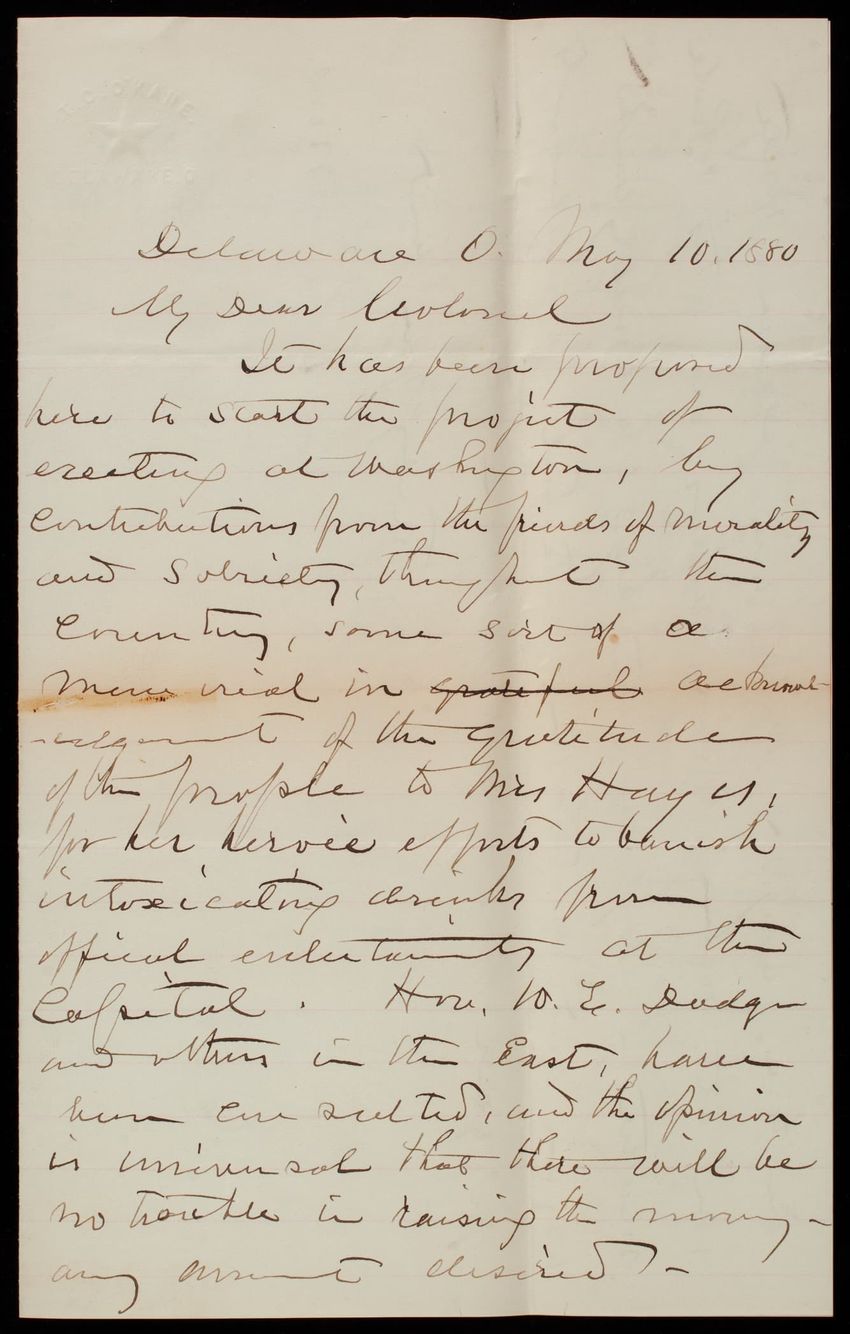 T. C. O'KANE.
DELAWARE. O.
Delaware O. May 10. 1880
My Dear Colonel
It has been proposed
here to start the project of
erecting at Washington, by
contributions from the friends of morality
and Sobriety, throughout the
Country, some sort of a
memorial in grateful acknowl-
-edgment of the gratitude
of the people to Mrs Hayes,
for her heroic efforts to banish
intoxicating drinks from
official entertainments at the
Capital. Hon. W. E. Dodge
and others in the East, have
been consulted, and the opinion
is universal that there will be
no trouble in raising the money -
any amount desired -